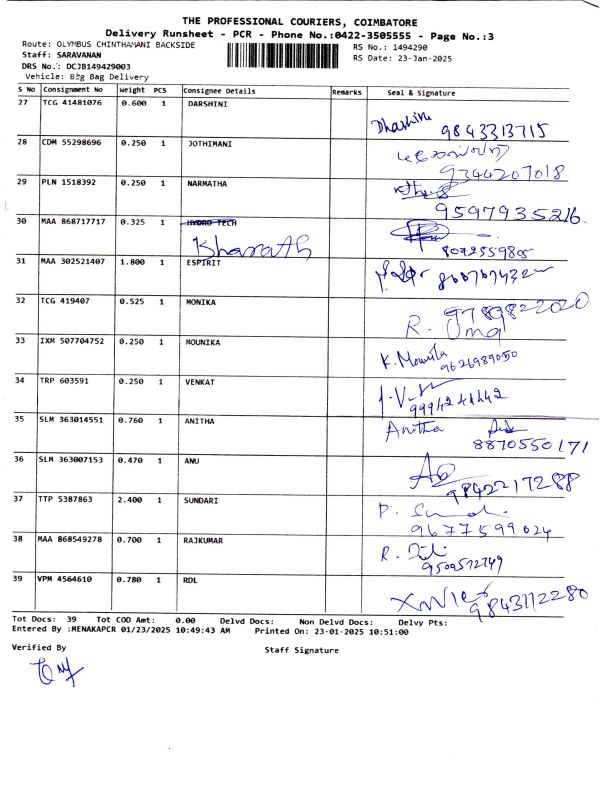 THE PROFESSIONAL COURIERS, COIMBATORE
Delivery Runsheet - PCR - Phone No.:0422-3505555 - Page No.:3
Route: OLYMBUS CHINTHAMANI BACKSIDE
RS No.: 1494290
Staff: SARAVANAN
RS Date: 23-Jan-2025
DRS No.: DCJB149429003
Vehicle: Big Bag Delivery
S No Consignment No Weight PCS Consignee Details Remarks Seal & Signature
27 TCG 41481076 0.600 1 DARSHINI
Dharshini 9843313715
28 CDM 55298696 0.250 1 JOTHIMANI
9344207018
29 PLN 1518392 0.250 1 NARMATHA
9597935216
30 MAA 868717717 0.325 1 HYDRO TECH
Kharath
31 MAA 302521407 1.800 1 ESPIRIT
32 TCG 419407 0.525 1 MONIKA
R. Uma
33 IXM 507704752 0.250 1 MOUNIKA
K. Mounika 9626989050
34 TRP 603591 0.250 1 VENKAT
9994241442
35 SLM 363014551 0.760 1 ANITHA
Anitha
8870550171
36 SLM 363007153 0.470 1 ANU
9842217288
37 TTP 5387863 2.400 1 SUNDARI
9677599024
38 MAA 868549278 0.700 1 RAJKUMAR
39 VPM 4564610 0.780 1 RDL
9843112280
Tot Docs: 39 Tot COD Amt: 0.00 Delvd Docs: Non Delvd Docs: Delvy Pts:
Entered By :MENAKAPCR 01/23/2025 10:49:43 AM Printed On: 23-01-2025 10:51:00
Verified By
Staff Signature